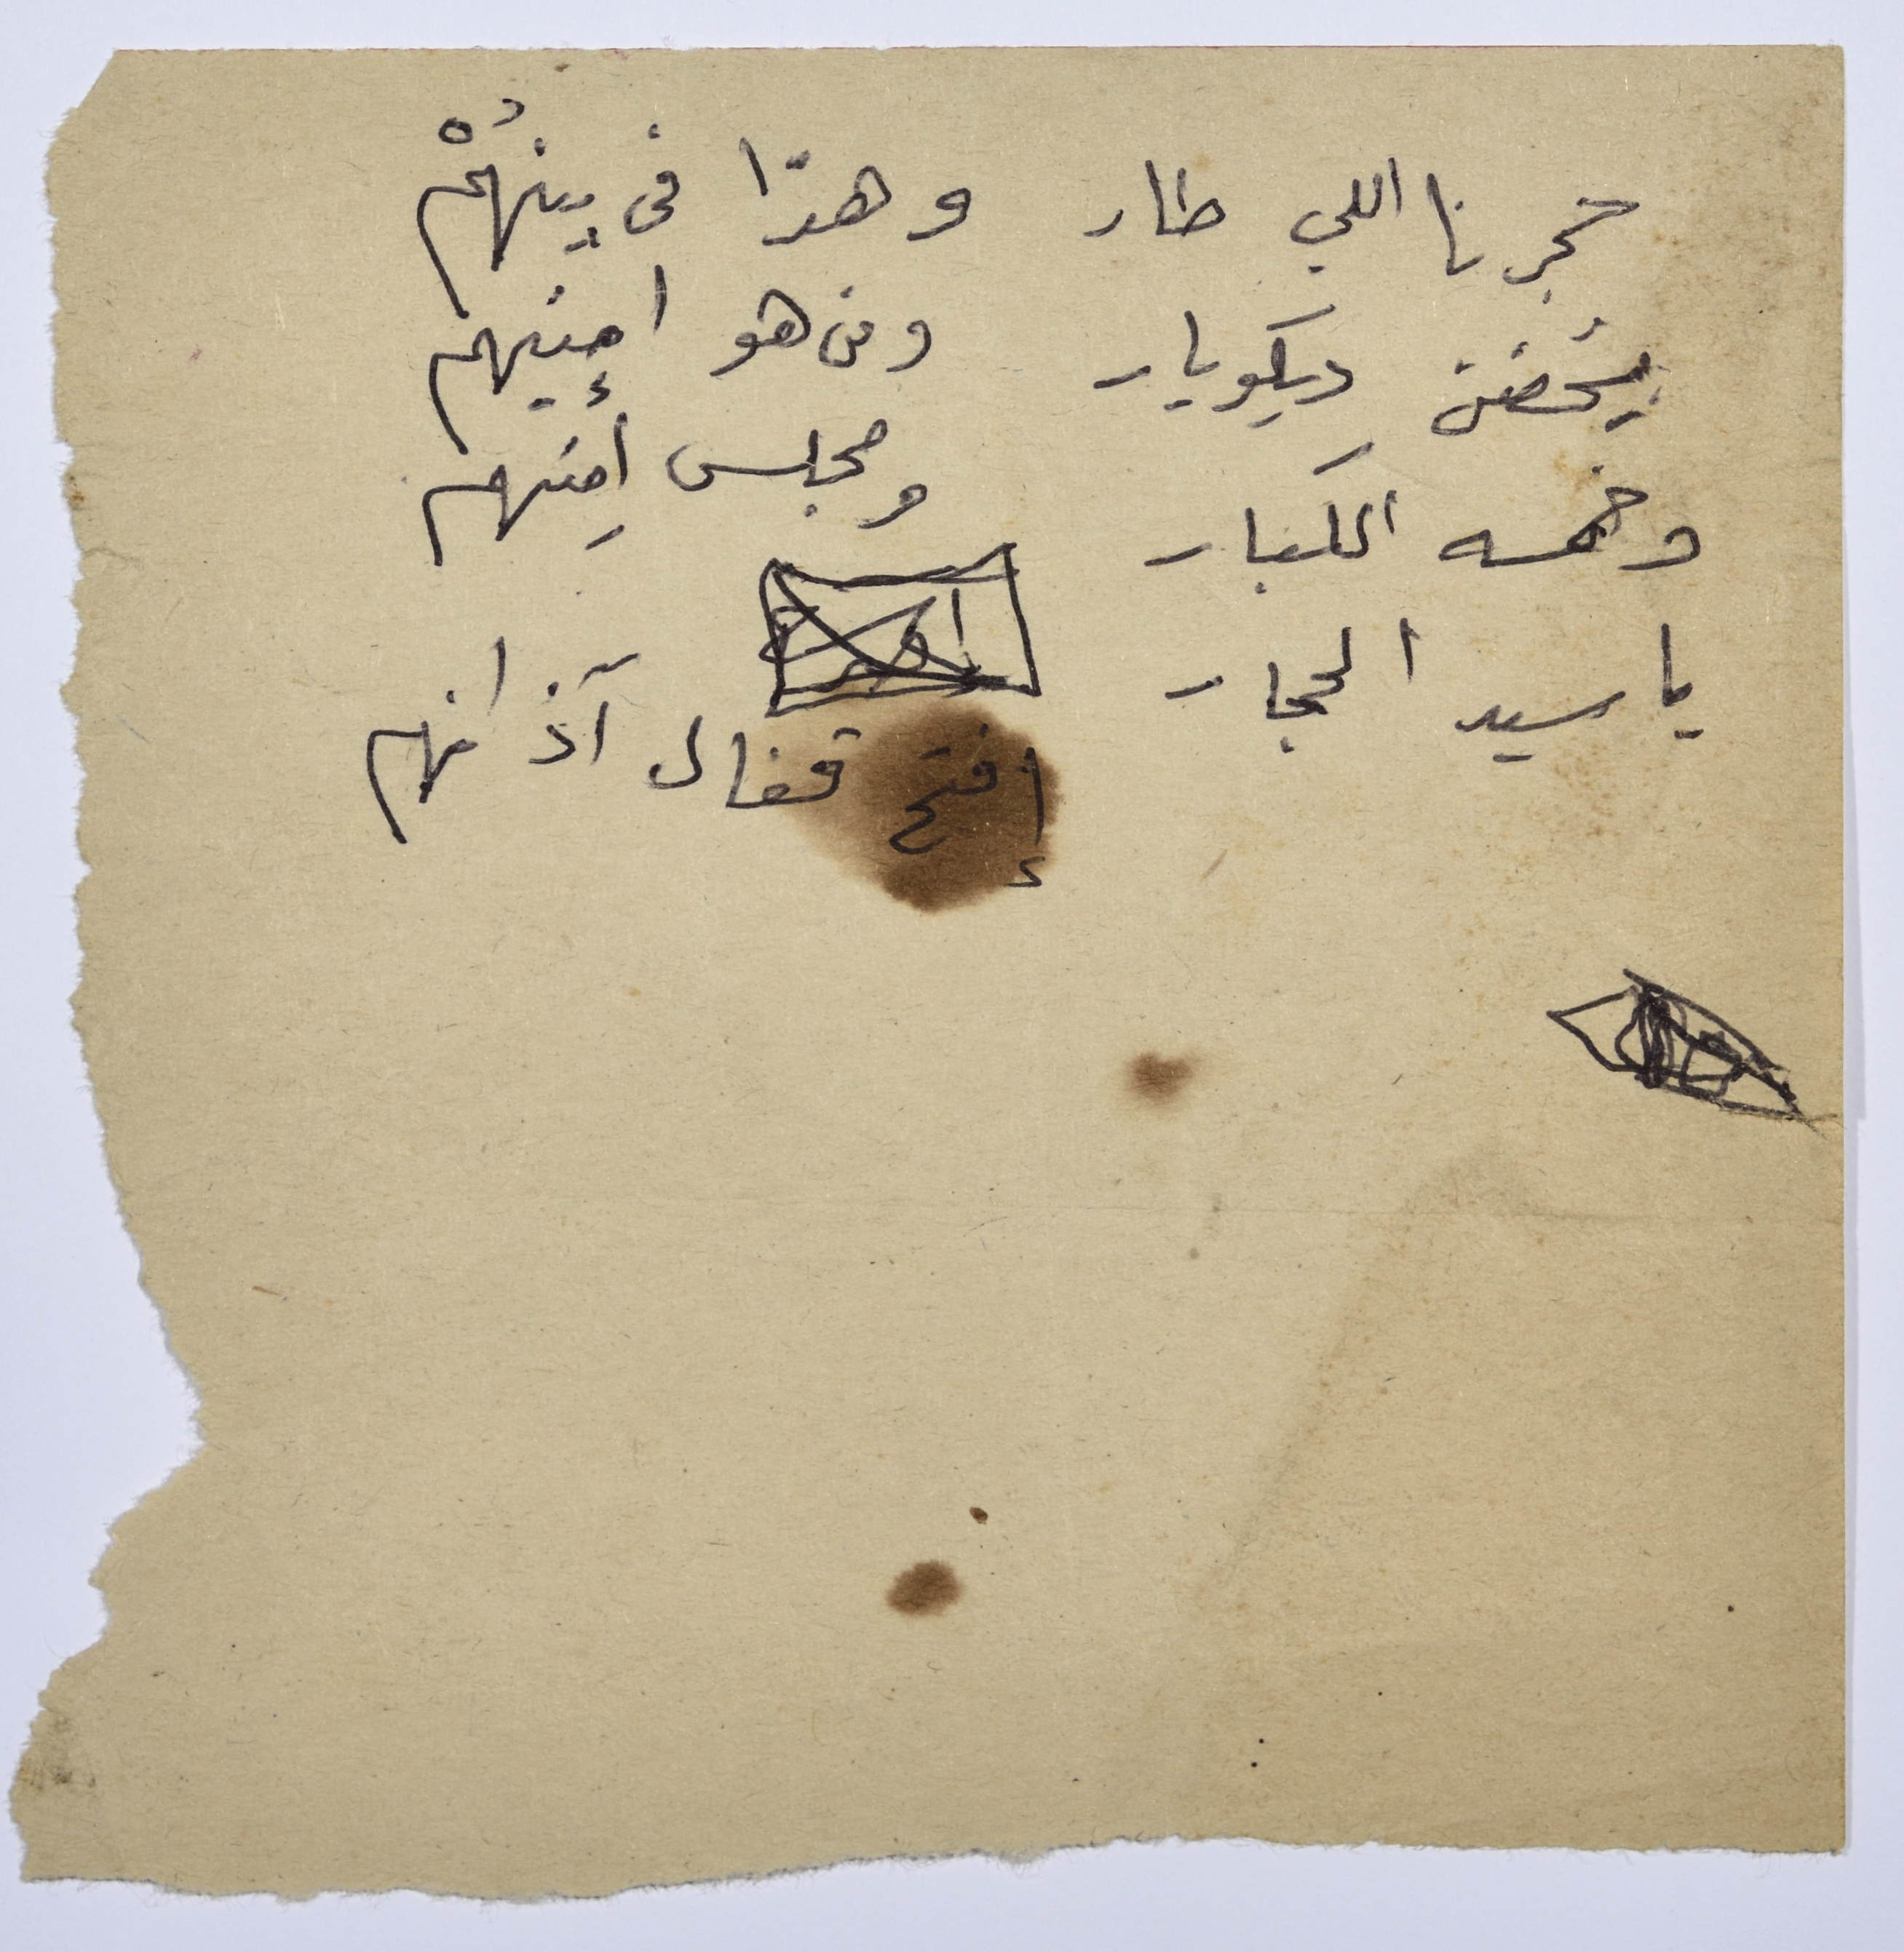 حجرنا اللي طار وهدّا في بينهُمْ
يُحضن ديكويار ومن هو امينهم
وخمسه الكبار ومجلس أمِنهم
يا سيد الحجار
إفتح قفال آذانهم